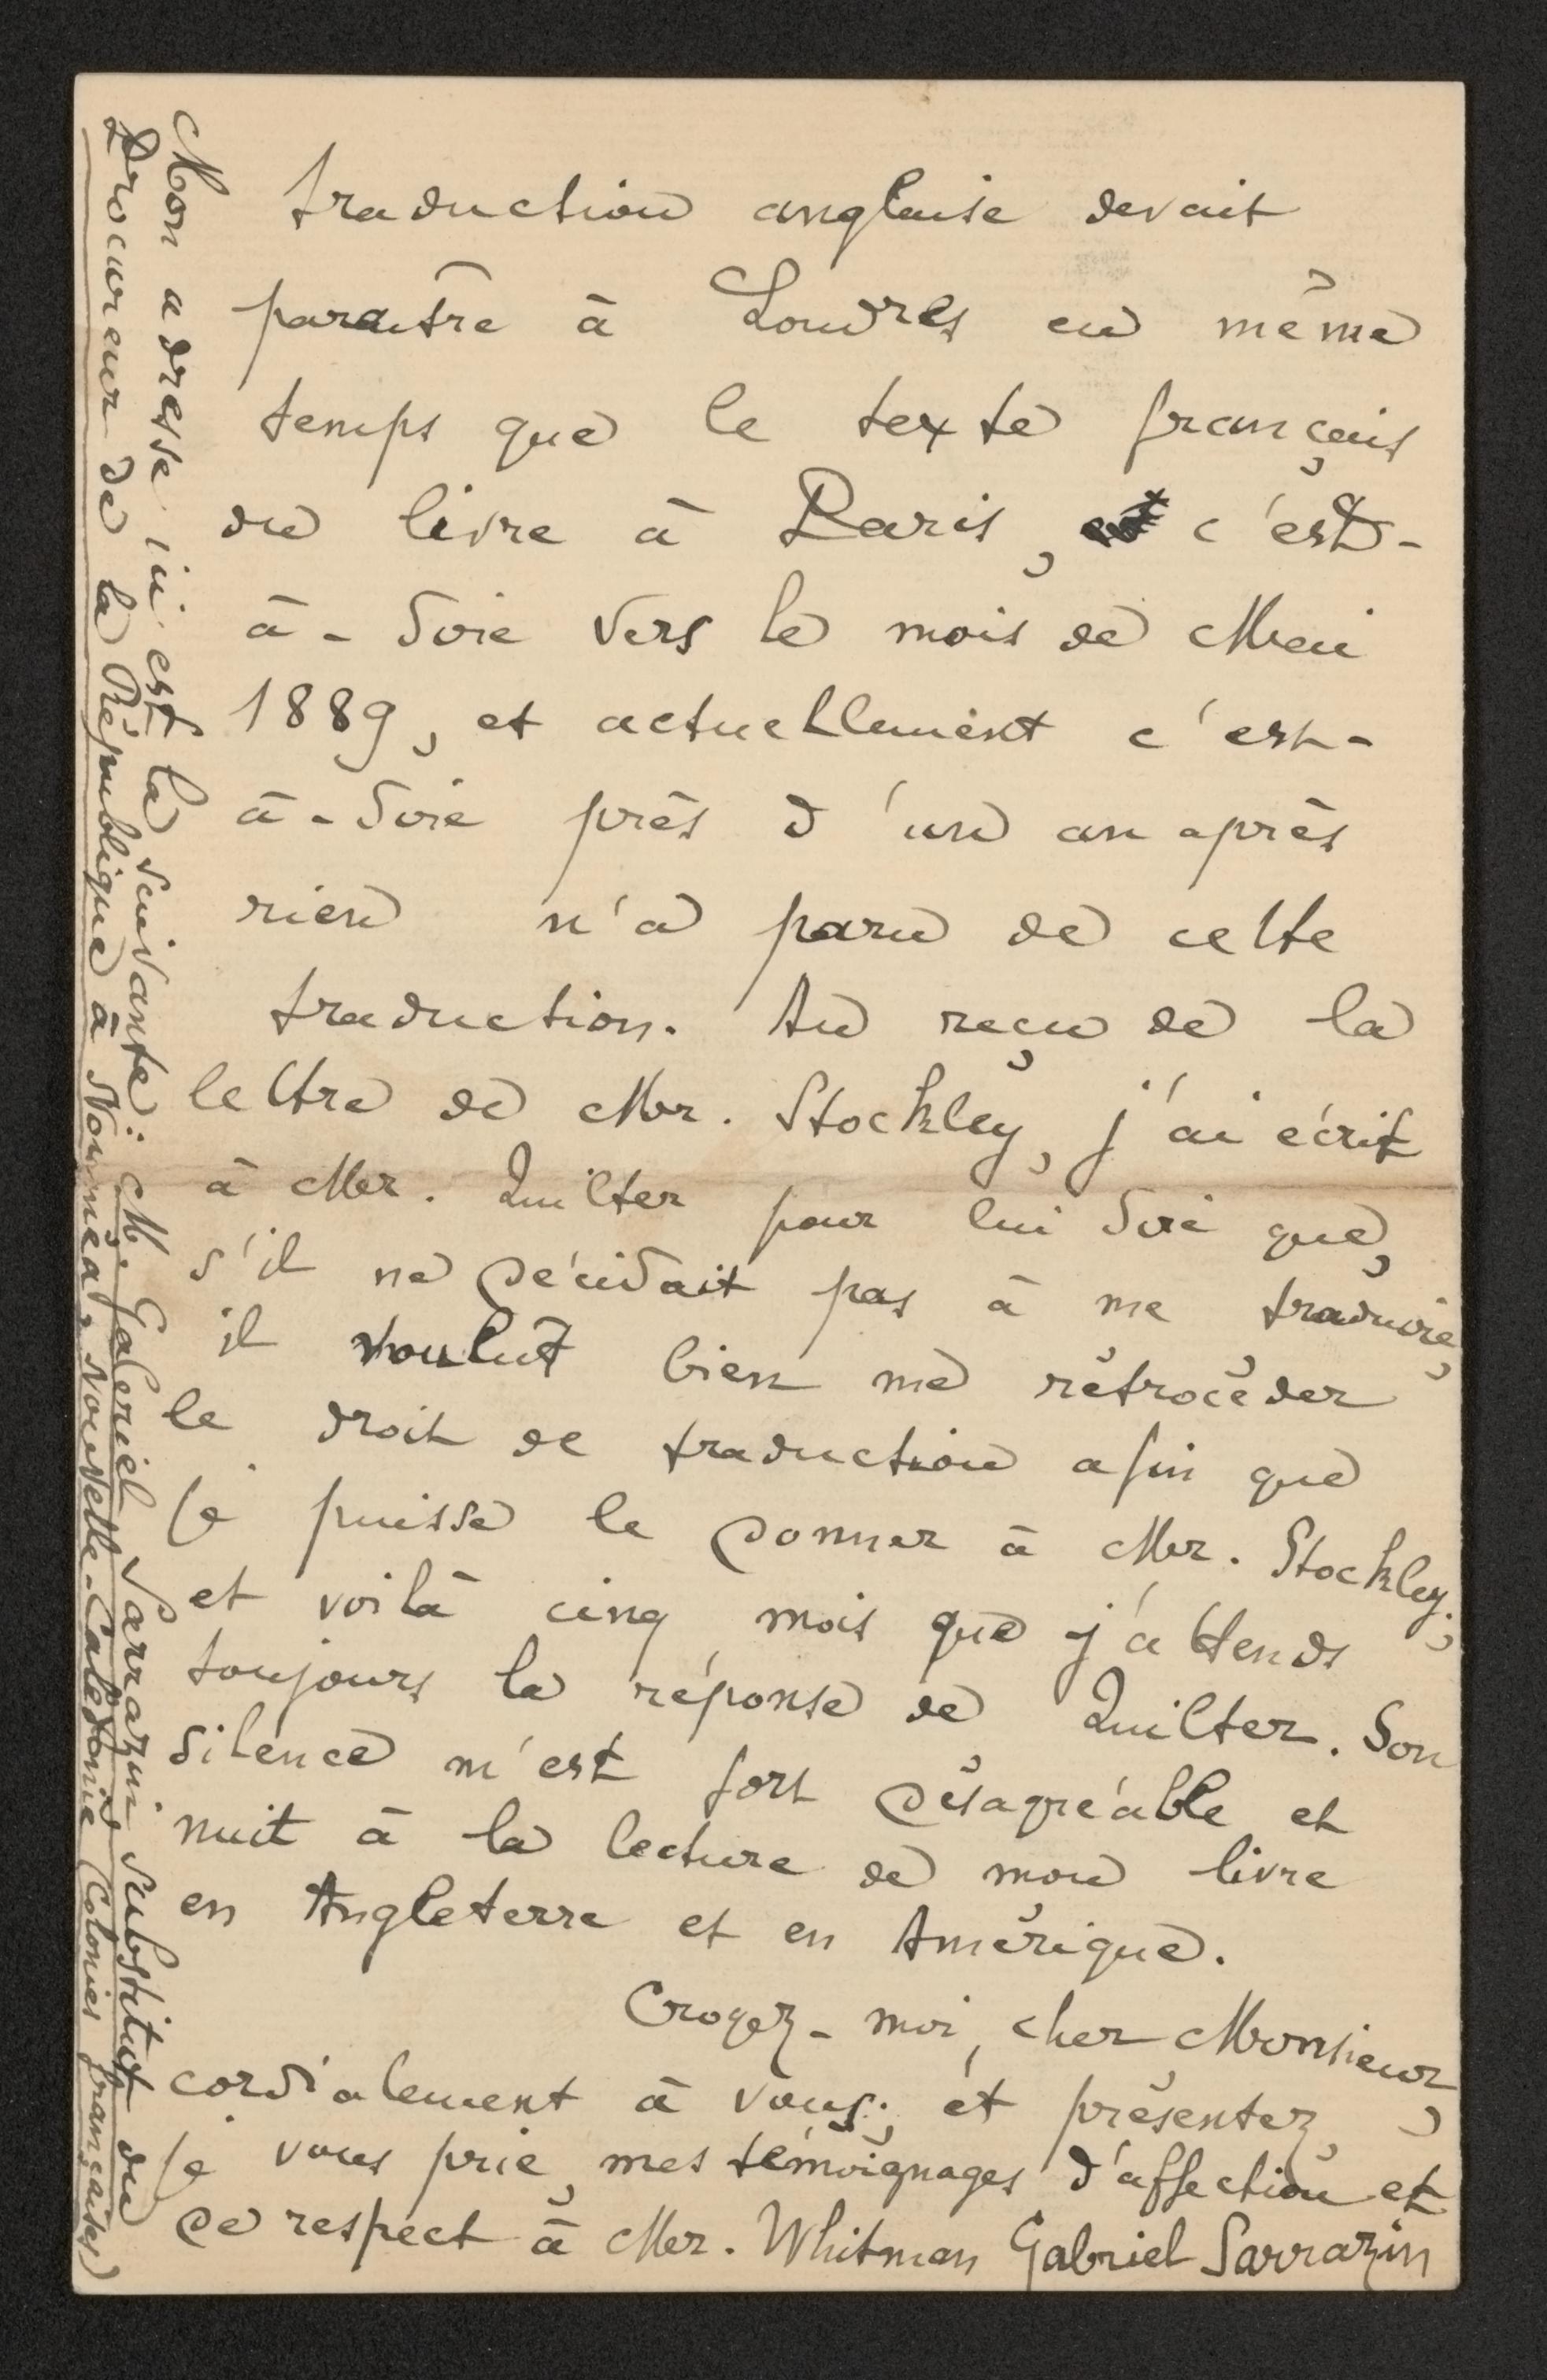 traduction anglaise devait
paraître à Londres en même
temps que le texte français
du livre à Paris, c'est-
à-dire vers le mois de Mai
1889, et actuellement c'est-
à-dire près d'un an après
rien n'a paru de cette
traduction. Au reçu de la
lettre de Mr. Stockley, j'ai écrit
à Mr. Quilter pour lui dire que,
s'il ne décidait pas à me traduire,
il voulut bien me rétrocéder
le droit de traduction afin que
je puisse le donner à Mr. Stockley;
et voilà cinq mois que j'attends
toujours la réponse de Quilter. Son
silence m'est fort désagréable et
nuit à la lecture de mon livre
en Angleterre et en Amérique.
Croyez-moi, cher Monsieur,
cordialement à vous; et présentez,
je vous prie, mes témoignages d'affection et
de respect à Mr. Whitman Gabriel Sarrazin
Mon adresse ici est la suivante: M. Gabriel Sarrazin, Substitut du
Procureur de la République à Nouméa, Nouvelle-Calédonie (Colonies françaises)